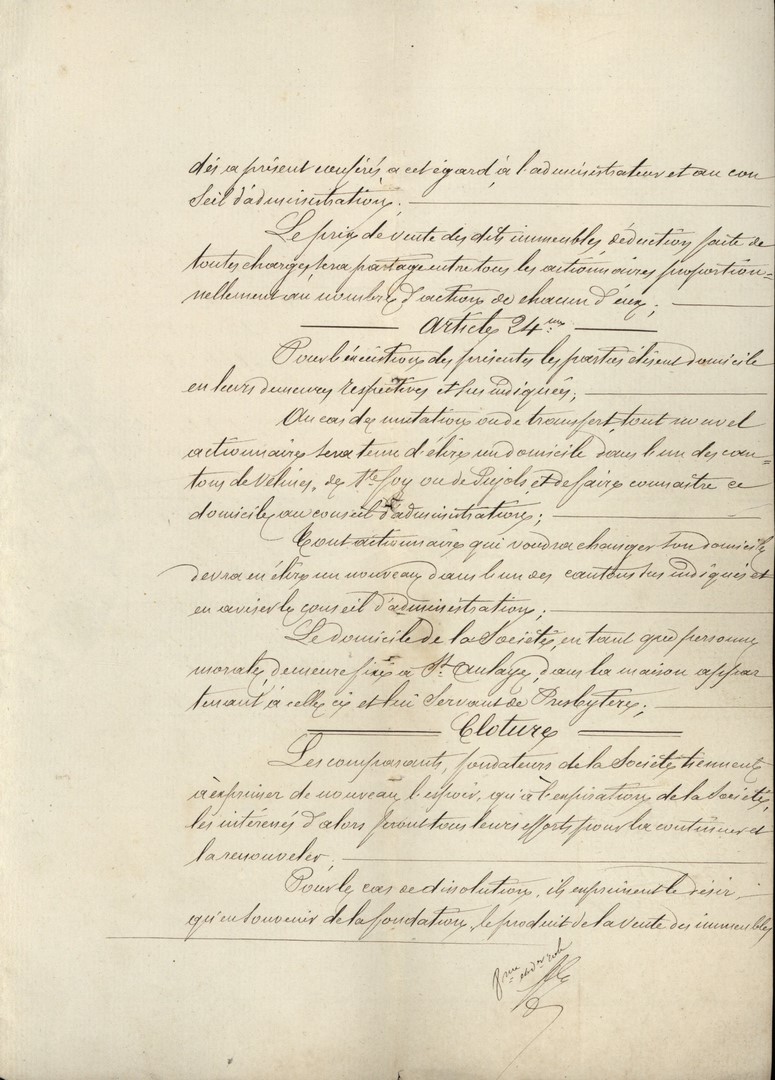 dès à présent conférés, à cet égard, à l'administrateur et au con
seil d'administration;
Le prix de vente des dits immeubles, déduction faite de
toutes charges, sera partagé entre tous les actionnaires proportion=
nellement au nombre d'actions de chacun d'eux;
Article 24me
Pour l'exécution des présentes les parties élisent domicile
en leurs demeures respectives et sus indiquées;
Au cas de mutation ou de transfert, tout nouvel
actionnaire sera tenu d'élire un domicile dans l'un des can=
tons de Vélines, de Ste foy ou de Pujols, et de faire connaître ce
domicile au conseil d'administration;
Tout actionnaire qui voudra changer son domicile
devra en élire un nouveau dans l'un des cantons sus indiqués et
en aviser le conseil d'administration;
Le domicile de la Société, en tant que personne
morale, demeure fixé à St. Aulaye, dans la maison appar
tenant à celle ci et lui servant de Presbytère;
Cloture
Les comparants, fondateurs de la Société tiennent
à exprimer de nouveau l'espoir, qu'à l'expiration de la Société,
les intéressés d'alors feront tous leurs efforts pour la continuer et
la renouveler;
Pour le cas de dissolution, ils expriment le désir
qu'en souvenir de la fondation, le produit de la vente des immeubles